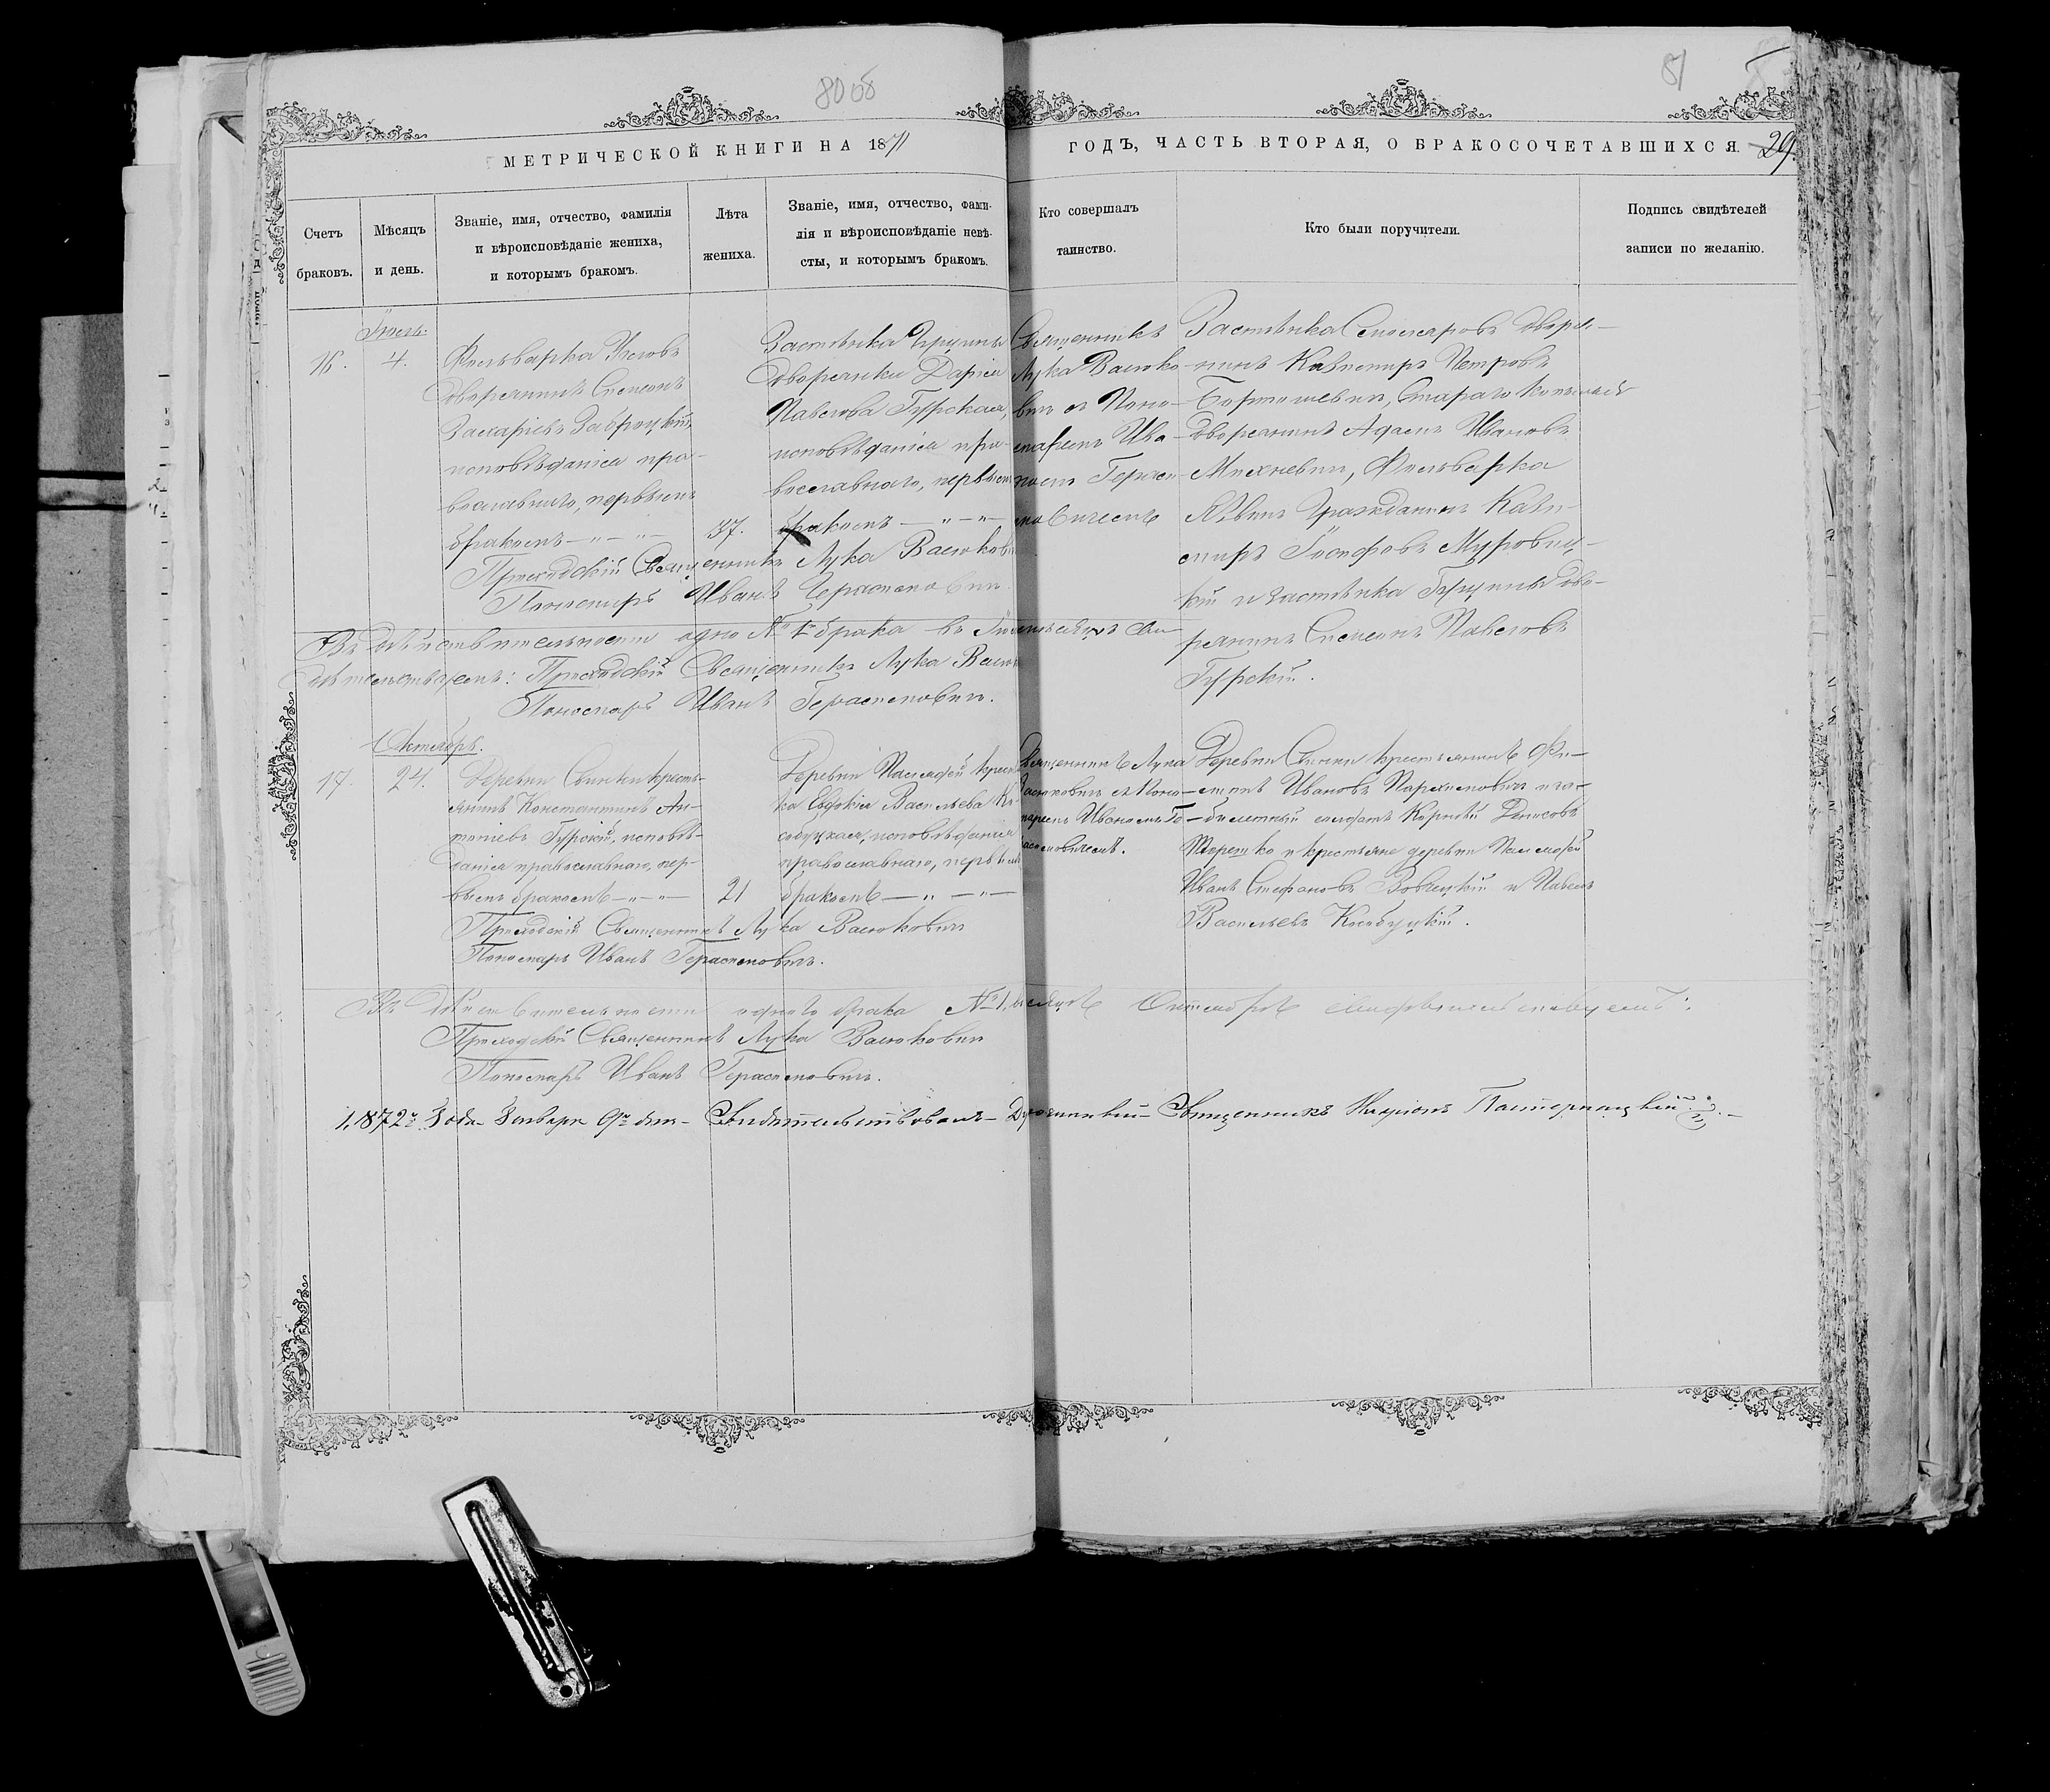 80 об
81
МЕТРИЧЕСКОЙ КНИГИ НА 1871
ГОДЪ, ЧАСТЬ ВТОРАЯ, О БРАКОСОЧЕТАВШИХСЯ.
29.
Счетъ
браковъ.
Мѣсяцъ
и день.
Званіе, имя, отчество, фамилія
и вѣроисповѣданіе жениха,
и которымъ бракомъ.
Лѣта
жениха.
Званіе, имя, отчество, фами-
лія и вѣроисповѣданіе невѣ-
сты, и которымъ бракомъ.
Кто совершалъ
таинство.
Кто были поручители.
Подпись свидѣтелей
записи по желанію.
16.
4.
Фольварка
дворянинъ Симеонъ
Захаріевъ Заброцкій,
исповѣданія пра-
вославнаго, первымъ
бракомъ — „ — „ —
37.
Застѣнка
дворянка Дарія
Павлова Гурская,
исповѣданія пра-
вославнаго, первымъ
бракомъ — „ — „ —
Священникъ
Лука Васюко-
вич съ Поно-
маремъ Ива-
номъ Гераси-
мовичемъ
Застѣнка дворя-
нинъ Казимиръ Петровъ
Стараго
дворянинъ Адамъ Ивановъ
Михневич, Фольварка
Гражданинъ Кази-
миръ Іосифовъ
кій и застѣнка дво-
рянинъ Симеонъ Павловъ
Гурскій.
Приходскій Священникъ Лука Васюкович
Пономарь Иванъ Герасимович
Въ дѣйствительности одно № 1 брака въ сви-
дѣтельствуемъ: Приходскій Священникъ Лука Васюкович
Пономарь Иванъ Герасимович.
Октябрь.
17.
24.
Деревни Свинки кресть-
янинъ Константинъ Ан-
тоніевъ Гурскій, исповѣ-
данія православнаго, пер-
вымъ бракомъ — „ — „ —
21
Деревни крестьян-
ка Евдокія Васильева Ко-
собуцкая, исповѣданія
православнаго, первымъ
бракомъ — „ — „ —
Священникъ Лука
Васюкович съ Поно-
маремъ Иваномъ Ге-
расимовичемъ.
Деревни Свинки крестьянинъ
Ивановъ Пархимович
билетный солдатъ Корнѣй Денисовъ
и крестьяне деревни
Иванъ Стефановъ и Павелъ
Васильевъ Кособуцкій.
Приходскій Священникъ Лука Васюкович
Пономарь Иванъ Герасимович.
Въ дѣйствительности одного брака № 1, мѣсяцѣ Октябрѣ свидѣтельствуемъ:
Приходскій Священникъ Лука Васюкович
Пономарь Иванъ Герасимович.
1872 года Января 9 дня Свидѣтельствовалъ Священникъ